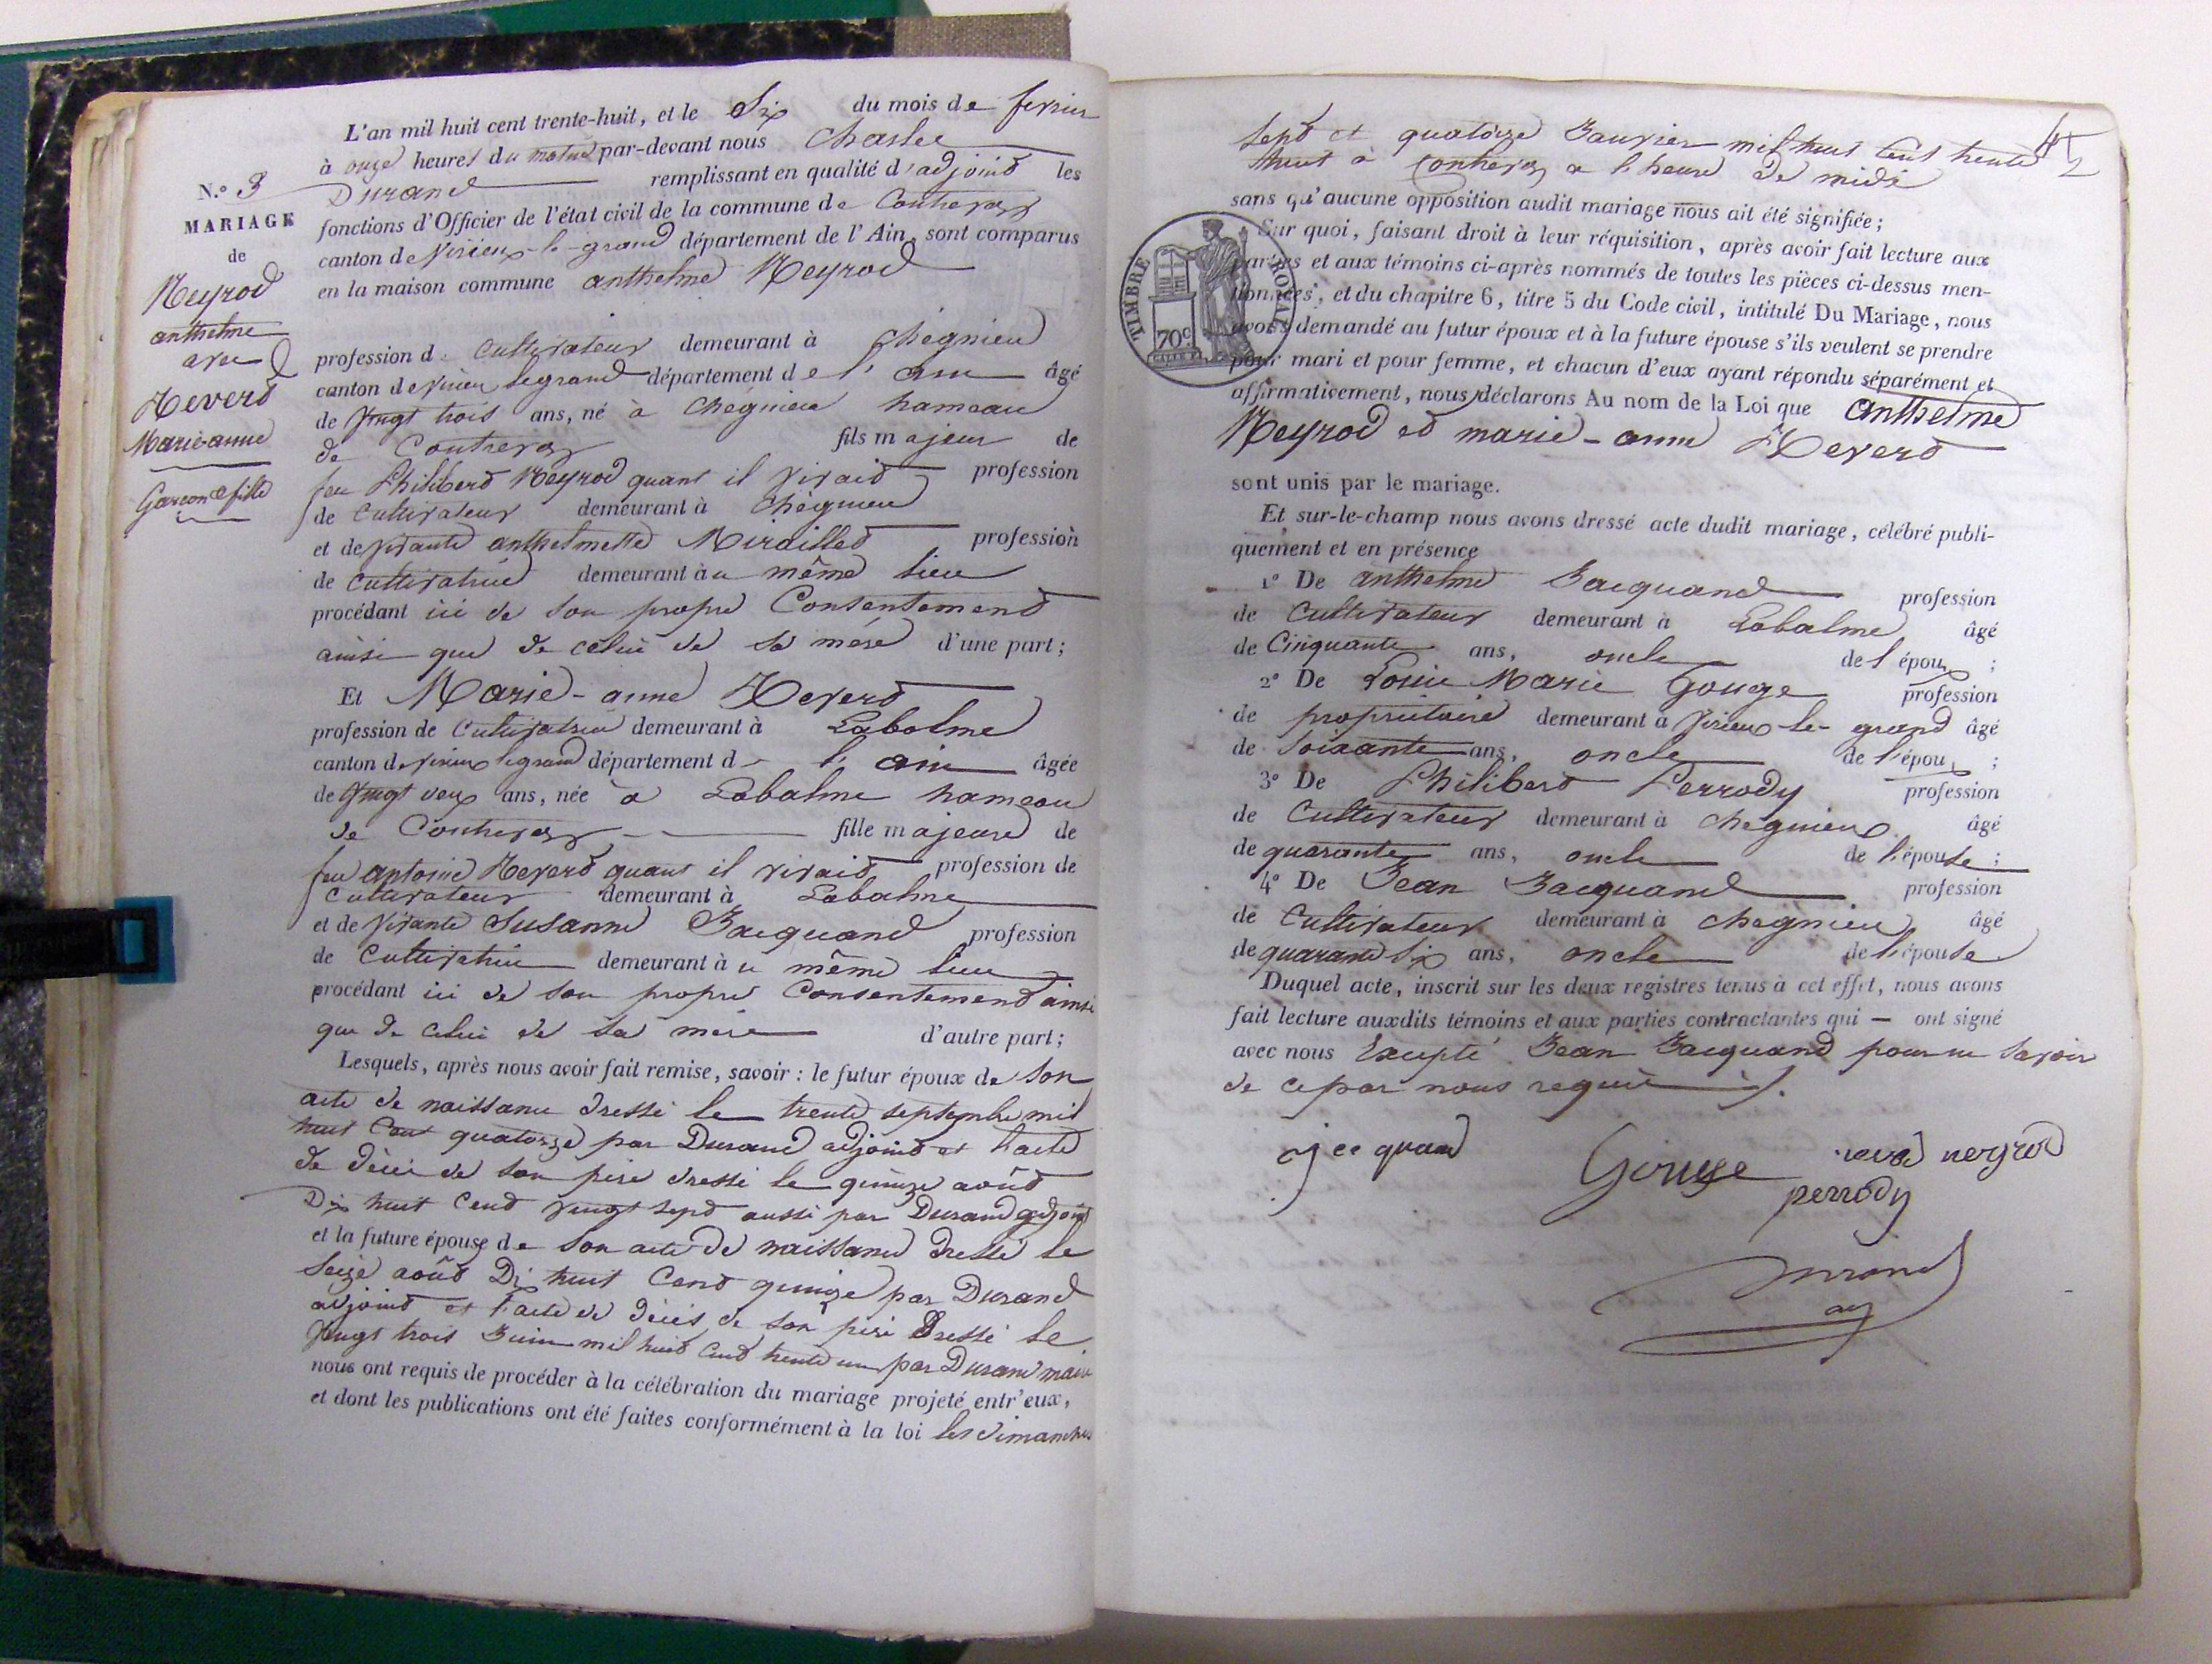 N.o 3
MARIAGE
de
Neyrod
anthelme
avec
Reverd
Marie-anne
Garcon et fille
L'an mil huit cent trente-huit, et le Six du mois de fevrier
à onze heures du matin par-devant nous Charlee
Durand remplissant en qualité d'adjoind les
fonctions d'Officier de l'état civil de la commune de Contrevoz
canton de Virieux-le-grand département de l'Ain, sont comparus
en la maison commune anthelme Neyrod
profession de Cultivateur demeurant à Chegnieu
canton de virieu legrand département de l'ain âgé
de Vingt trois ans, né à Chegnieu hameau
de Contrevoz fils majeur de
feu Philiberd Neyrod quant il vivaid profession
de Cultivateur demeurant à Chégnieu
et de Vivante anthelmette Mirailled profession
de Cultivatrice demeurant àu même lieu
procédant ici de son propre Consentemend
ainsi que de celui de sa mére d'une part;
Et Marie-anne Reverd
profession de Cultivatrice demeurant à Labalme
canton de virieux legrand département de l'ain âgée
de Vingt deux ans, née à Labalme hameau
de Contrevoz fille majeure de
feu antoine Reverd quant il vivaid profession de
Cultivateur demeurant à Labalme
et de Vivante Susanne Jacquand profession
de Cultivatrice demeurant àu même lieu
procédant ici de son propre Consentemend ainsi
que de celui de sa mère d'autre part;
Lesquels, après nous avoir fait remise, savoir : le futur époux de son
acte de naissance dressé le trente septembre mil
huit Cent quatorze par Durand adjoind et l'acte
de décès de son père dressé le quinze août
Dix huit Cend vingt sepd aussi par Durand adjoind
et la future épouse de son acte de naissance dressé le
Seize août Dix huit Cend quinze par Durand
adjoind et l'acte de décès de son père Dressé le
Vingt trois Juin mil huit Cend trente un par Durand maire
nous ont requis de procéder à la célébration du mariage projeté entr'eux,
et dont les publications ont été faites conformément à la loi les dimanches
sepd et quatorze Janvier mil huit Cent trente
huit à Contrevoz a l'heure de midi
sans qu'aucune opposition audit mariage nous ait été signifiée;
Sur quoi, faisant droit à leur réquisition, après avoir fait lecture aux
parties et aux témoins ci-après nommés de toutes les pièces ci-dessus men-
tionnées, et du chapitre 6, titre 5 du Code civil, intitulé Du Mariage, nous
avons demandé au futur époux et à la future épouse s'ils veulent se prendre
pour mari et pour femme, et chacun d'eux ayant répondu séparément et
affirmativement, nous déclarons Au nom de la Loi que anthelme
Neyrod ed marie-anne Reverd
sont unis par le mariage.
Et sur-le-champ nous avons dressé acte dudit mariage, célébré publi-
quement et en présence
1o De anthelme Jacquand profession
de Cultivateur demeurant à Labalme âgé
de Cinquante ans, oncle de l'époux ;
2o De Louie Marie Gouge profession
de propriétaire demeurant à Virieux-le-grand âgé
de Soixante ans, oncle de l'époux ;
3o De Philiberd Perrody profession
de Cultivateur demeurant à Chegnieux âgé
de quarante ans, oncle de l'épouse ;
4o De Jean Jacquand profession
de Cultivateur demeurant à Chegnieu âgé
de quarante six ans, oncle de l'épouse
Duquel acte, inscrit sur les deux registres tenus à cet effet, nous avons
fait lecture auxdits témoins et aux parties contractantes qui — ont signé
avec nous Excepté Jean Jacquand pour ne Savoir
de ce par nous requis
Gouge
neyrod
perrody
Durand
adj
TIMBRE ROYAL
70c